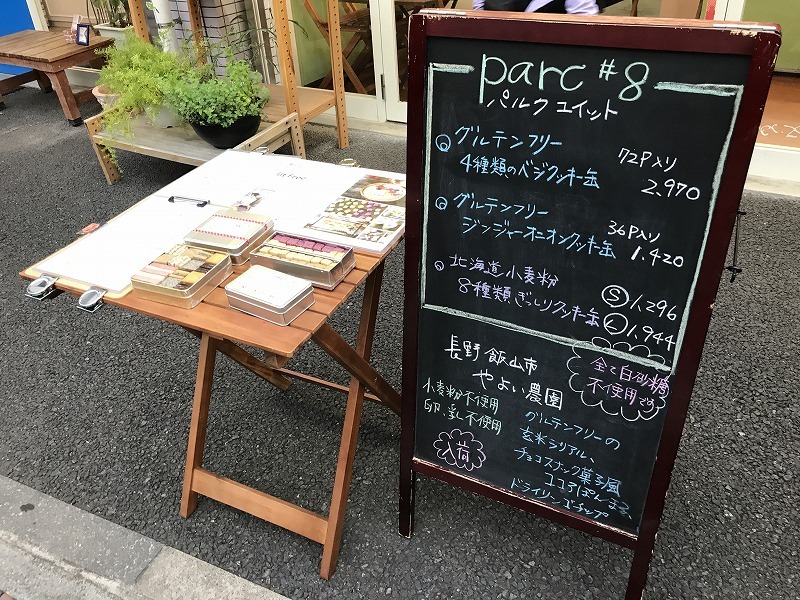 parc #8
パルク ユイット
グルテンフリー
4種類のベジクッキー缶
72P入り
2.970
グルテンフリー
ジンジャーオニオンクッキー缶
36P入り
1.420
北海道小麦粉
8種類ぎっしりクッキー缶
Ⓢ 1,296
Ⓛ 1,944
全て白砂糖
不使用です
長野 飯山市
やよい農園
小麦粉不使用
卵・乳不使用
入荷
グルテンフリーの
玄米シリアル、
チョコスナック菓子風
ココアぽんせん
ドライリンゴチップ